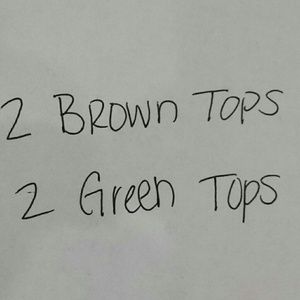 2 BROWN TOPS
2 Green TOPS